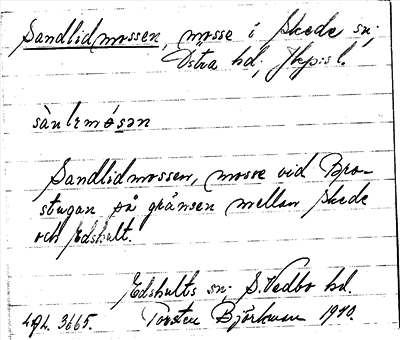 Sandlidmossen, mosse i Skede sn;
Östra hd; Jkpgs l.
Sandlidmossen, mosse vid Bro-
stugan på gränsen mellan Skede
och Edshult.
Edshults sn; S. Vedbo hd.
Torsten Björkman 1910.